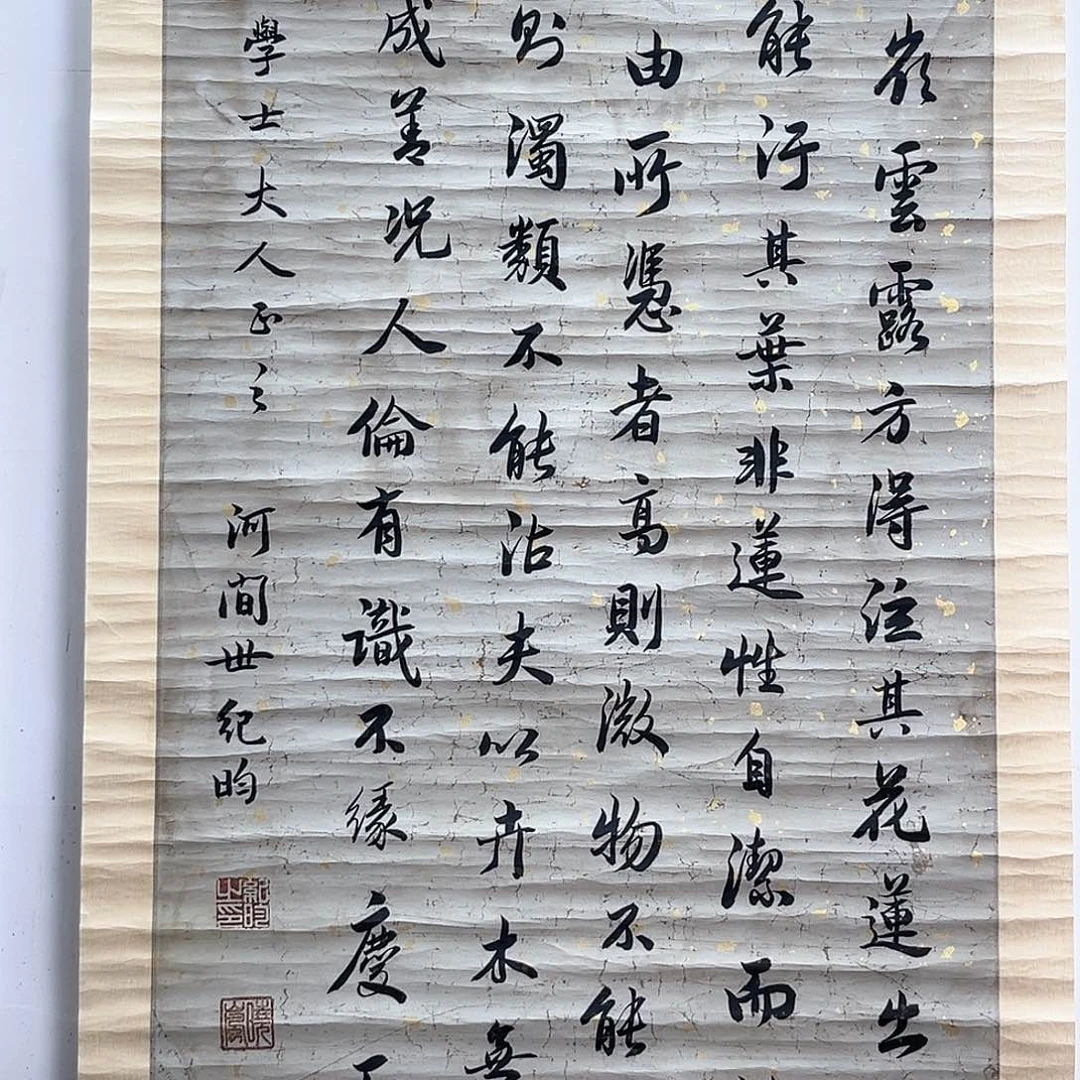 嶺雲露方得泫其花蓮出
能汙其葉非蓮性自潔而
由所憑者高則微物不能
則濁類不能沾夫以卉木無
成善况人倫有識不緣慶
學士大人正之 河間世紀昀
紀昀之印
曉嵐